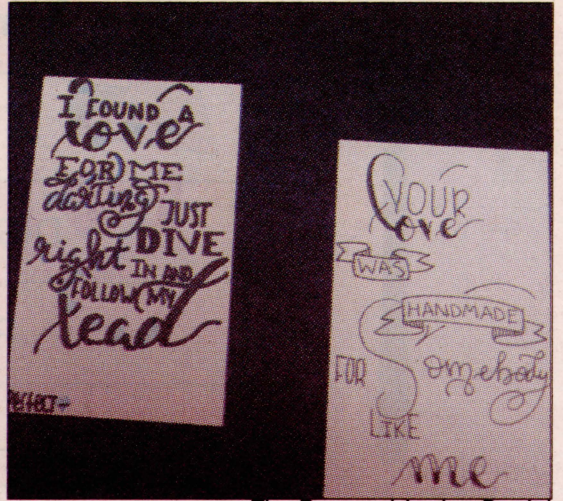 I FOUND A
love
FOR ME
darling JUST
right DIVE
IN AND
FOLLOW MY
lead
PERFECT-
YOUR
love
WAS
HANDMADE
FOR Somebody
LIKE
me